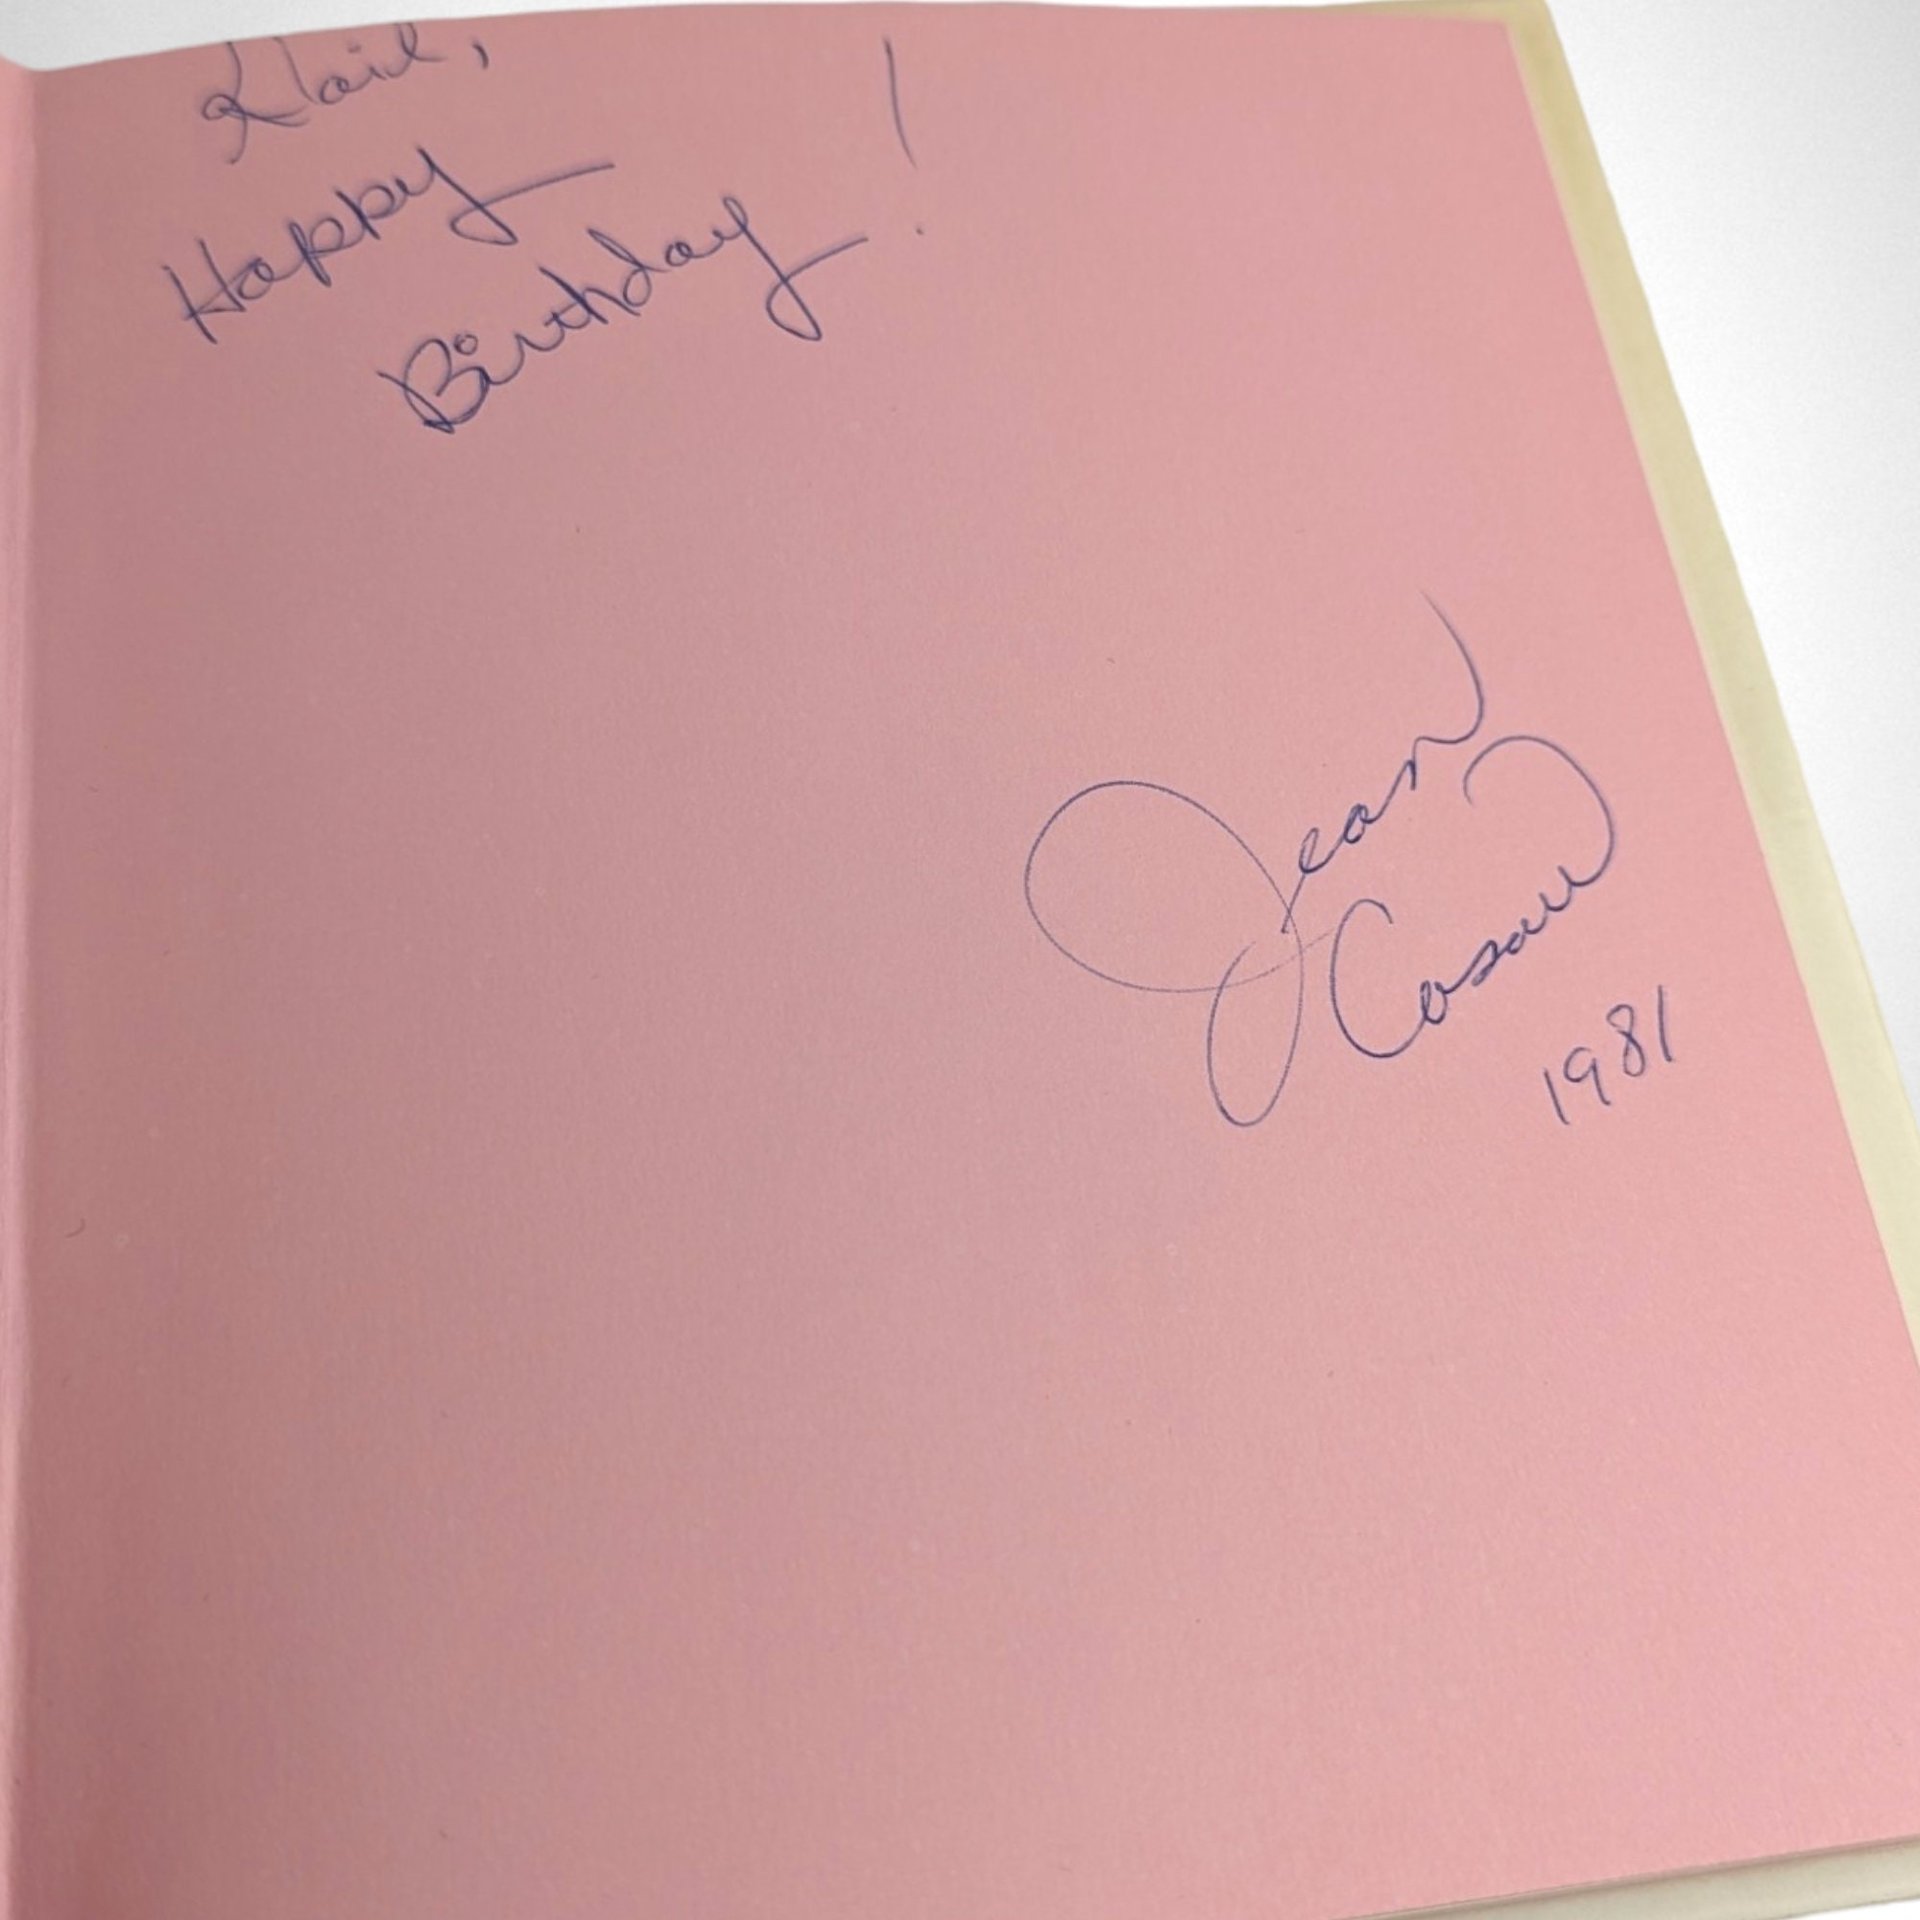 Gail,
Happy
Birthday!
Jean
Casau
1981